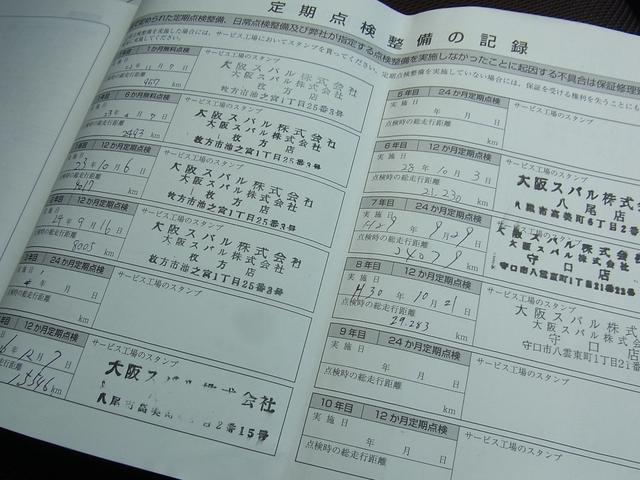 定期点検整備の記録
1か月無料点検
サービス工場のスタンプ
大阪スバル株式会社
大阪スバル株式会社
枚方店
枚方市池之宮1丁目25番3号
6か月無料点検
サービス工場のスタンプ
大阪スバル株式会社
大阪スバル株式会社
枚方店
枚方市池之宮1丁目25番3号
2493 km
12か月定期点検
サービス工場のスタンプ
23年10月6日
大阪スバル株式会社
大阪スバル株式会社
枚方店
枚方市池之宮1丁目25番3号
12か月定期点検
サービス工場のスタンプ
24年9月16日
8005 km
大阪スバル株式会社
大阪スバル株式会社
枚方店
枚方市池之宮1丁目25番3号
24か月定期点検
サービス工場のスタンプ
年 月 日
km
12か月定期点検
サービス工場のスタンプ
12月7日
km
会社
2番15号
5年目 24か月定期点検
サービス工場のスタンプ
実施日
年 月 日
点検時の総走行距離
km
6年目 12か月定期点検
サービス工場のスタンプ
実施日
28年10月3日
点検時の総走行距離
21,230 km
大阪スバル株式会社
八尾店
7年目 24か月定期点検
実施日
H29年9月29日
点検時の総走行距離
24079 km
大阪スバル株式会社
大阪スバル株式会社
守口店
守口市八雲東町1丁目21番22号
8年目 12か月定期点検
サービス工場のスタンプ
実施日
H30年10月21日
点検時の総走行距離
29.283 km
大阪スバル株式会社
大阪スバル株式会社
守口店
守口市八雲東町1丁目
9年目 24か月定期点検
サービス工場のスタンプ
実施日
年 月 日
点検時の総走行距離
km
10年目 12か月定期点検
サービス工場のスタンプ
実施日
年 月 日
点検時の総走行距離
km